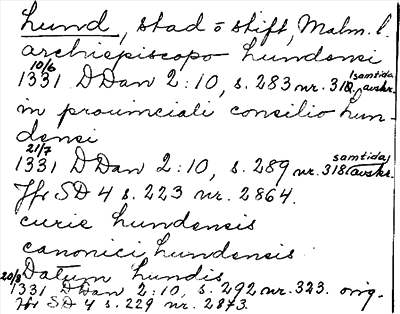 Lund, stad o stift, Malm. l.
archiepiscopo Lundensi
10/6 samtida
1331 DDan 2:10, s. 283 nr. 318, avskr.
in prouinciali consilio Lun-
densi
21/7 samtida
1331 DDan 2:10, s. 289 nr. 318 avskr.
Jfr SD 4 s. 223 nr. 2864.
curie Lundensis
canonici Lundensis
Datum Lundis
20/8 1331 DDan 2:10, s. 292 nr. 323. orig.
Jfr SD 4 s. 229 nr. 2873.